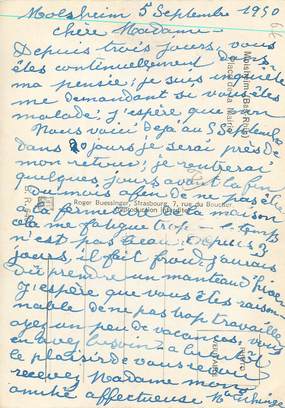 Molsheim 5 Septembre 1950
chère Madame -
Depuis trois jours, vous
êtes continuellement dans
ma pensée; je suis inquiète
me demandant si vous êtes
malade; j'espère que non
Nous voici déjà au 5 Septembre
dans 20 jours je serai près de
mon retour; je rentrerai
quelques jours avant la fin
du mois afin de ne pas être
à la fermeture de la maison
cela me fatigue trop - le temps
n'est pas beau; Depuis 3
jours, il fait froid, j'aurais
dû prendre un manteau d'hiver
J'espère que vous êtes raison-
nable de ne pas trop travailler
ayez un peu de vacances, vous
en avez besoin à bientôt
le plaisir de vous revoir
recevez Madame mon
amitié affectueuse
Molsheim (Bas-Rhin)
Place de la Mairie
Roger Buessinger, Strasbourg, 7, rue du Bouclier
Reproduction interdite